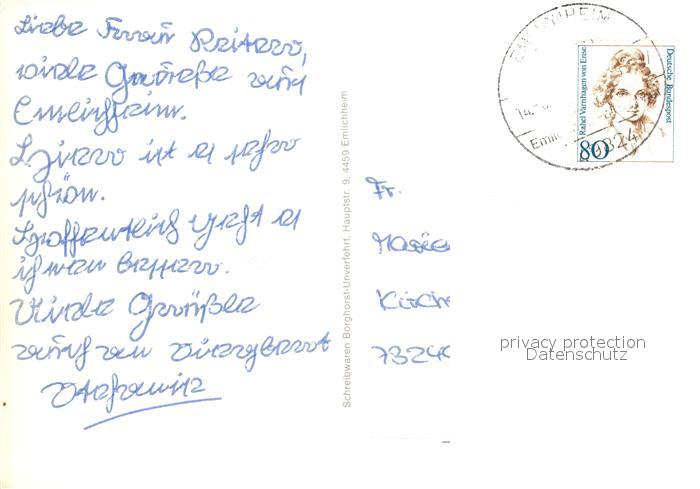 Liebe Frau Reitano,
viele Grüße aus
Emlichheim.
Hier ist es sehr
schön.
Hoffentlich geht es
ihnen besser.
Viele Grüße
auch an
Schreibwaren Borghorst-Unverfehrt, Hauptstr. 9, 4459 Emlichheim
EMLICHHEIM
14.
49824
Rahel Varnhagen von Ense
Deutsche Bundespost
80
Fr.
Kirche
73240
privacy protection
Datenschutz